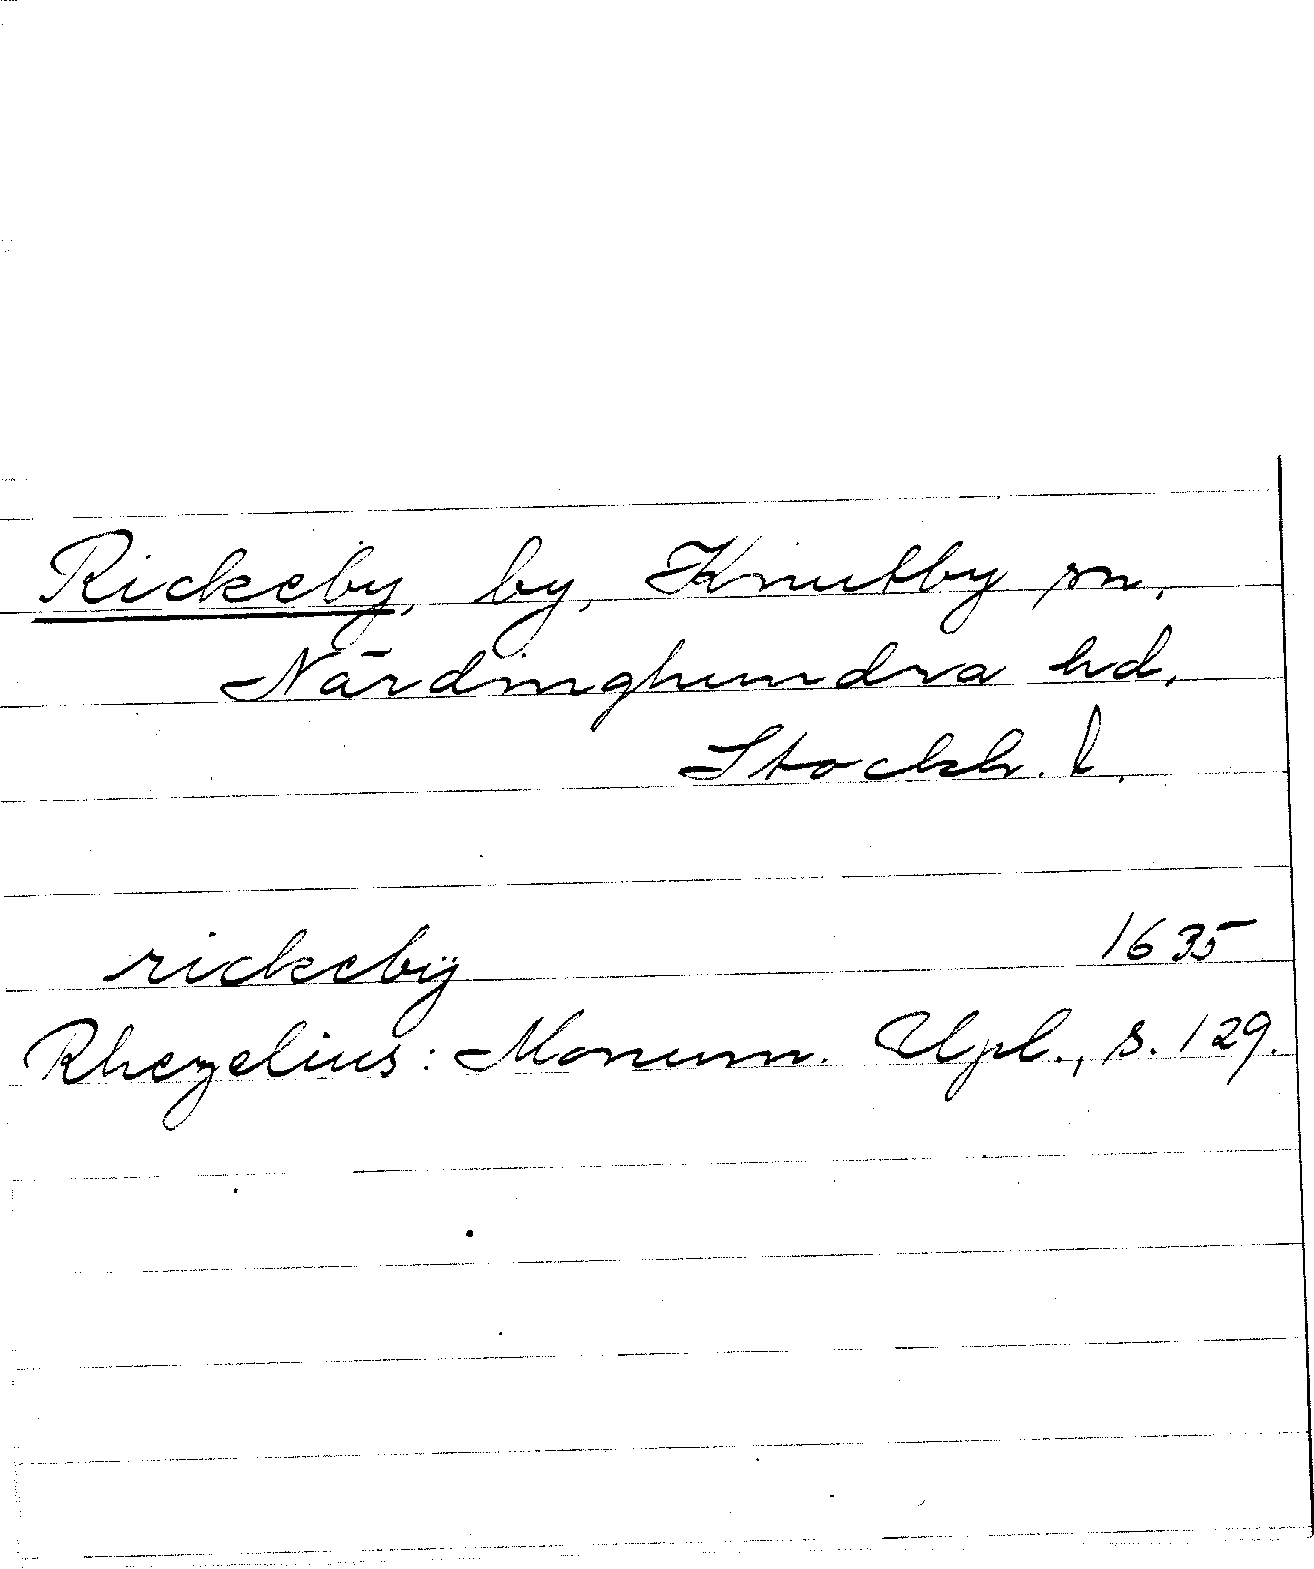 Rickeby, by, Knutby sn,
Närdinghundra hd,
Stockh. l.
rickebÿ 1635
Rhezelius: Monum. Upl., s. 129.